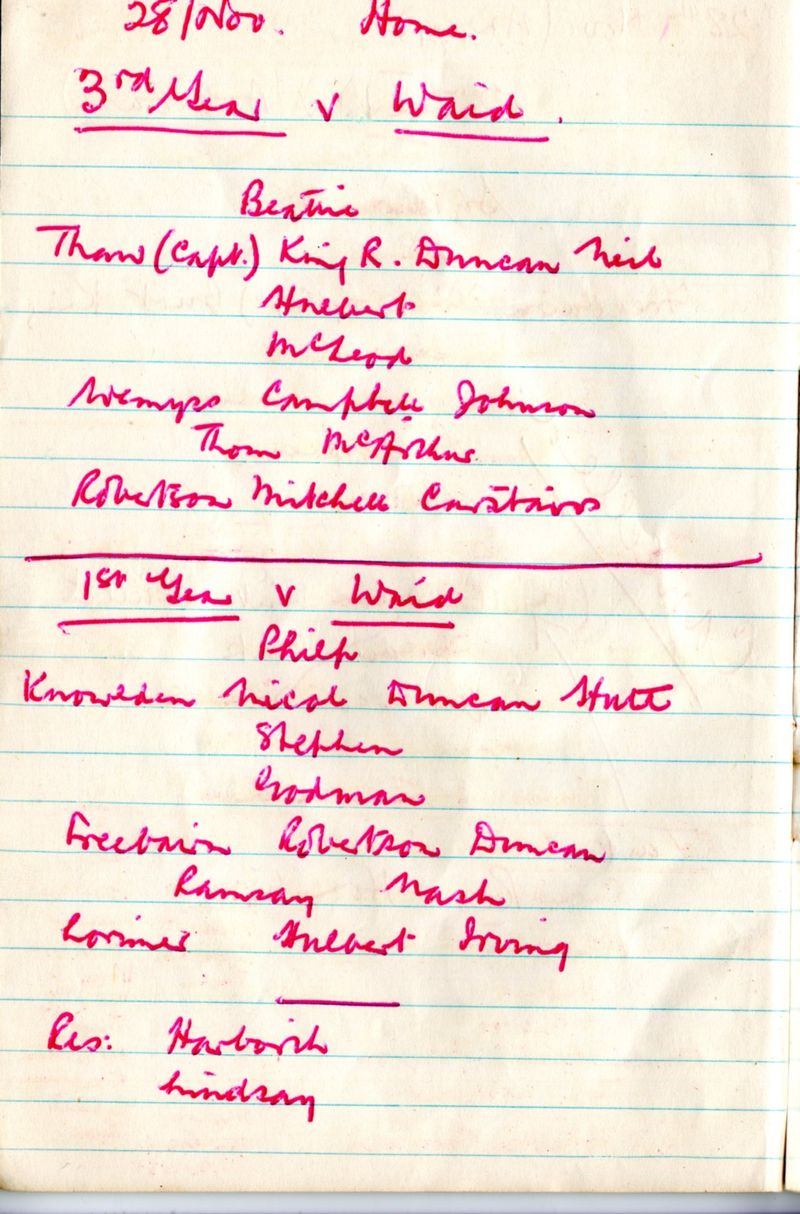 28/Nov. Home.
3rd Year v Waid.
Beattie
Thaw (Capt.) King R. Duncan Neil
Hulbert
McLeod
Wemyss Campbell Johnson
Thom McArthur
Robertson Mitchell Carstairs
1st Year v Waid
Philp
Knowlden Nicol Duncan Hutt
Stephen
Godman
Freebairn Robertson Duncan
Ramsay Nash
Lorimer Hulbert Irving
Res:
Lindsay